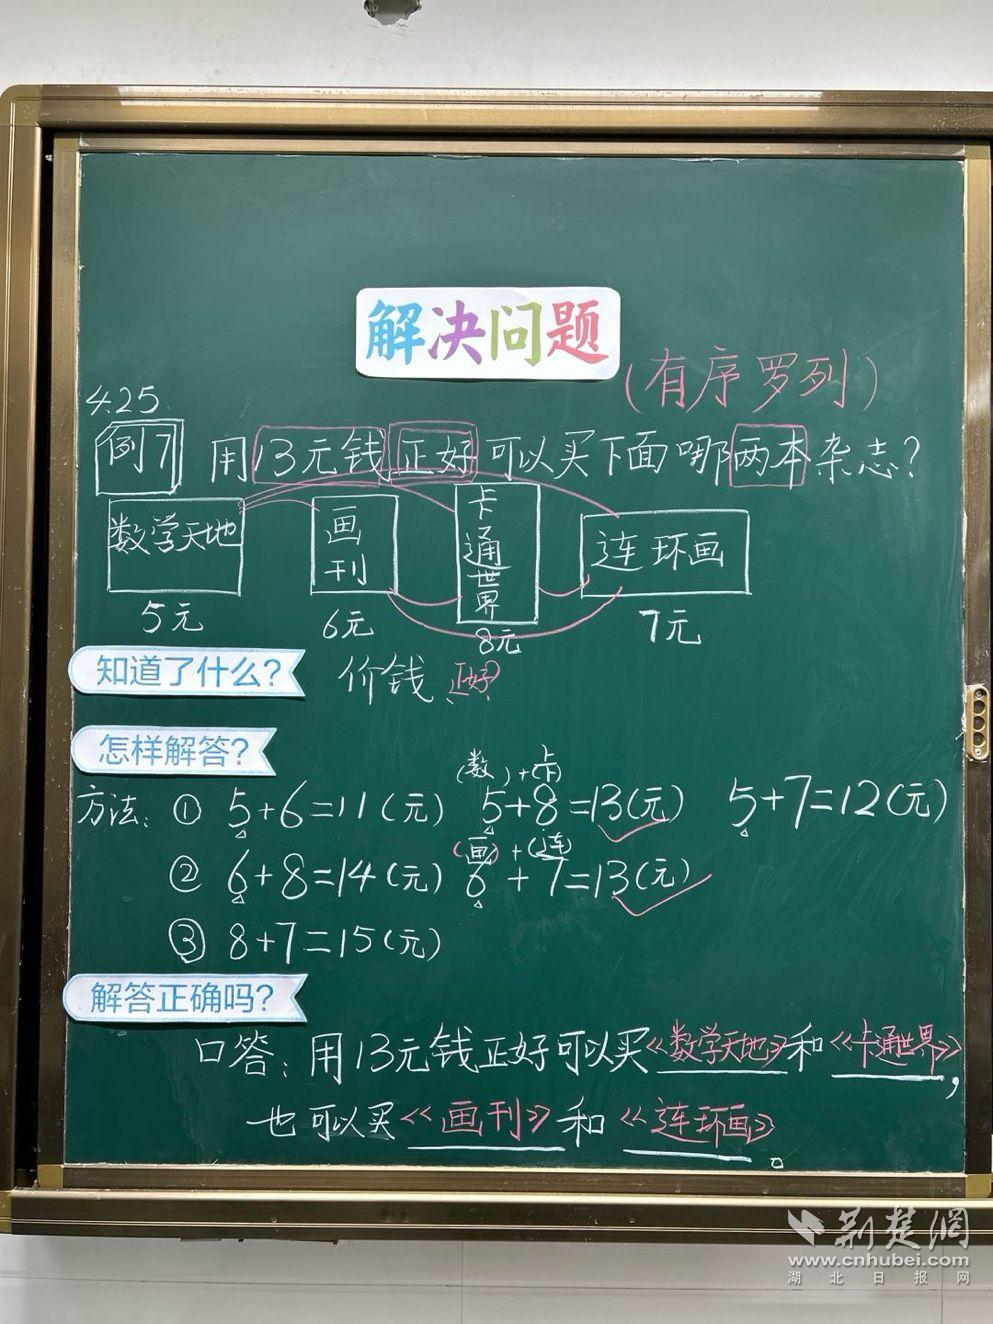 解决问题
(有序罗列)
4.25
例7 用13元钱正好可以买下面哪两本杂志?
数学天地 画刊 卡通世界 连环画
5元 6元 8元 7元
知道了什么? 价钱 正好?
怎样解答?
(数)+(卡)
方法: ① 5+6=11(元) 5+8=13(元) 5+7=12(元)
(画)+(连)
② 6+8=14(元) 6+7=13(元)
③ 8+7=15(元)
解答正确吗?
口答:用13元钱正好可以买《数学天地》和《卡通世界》,
也可以买《画刊》和《连环画》。
荆楚网
www.cnhubei.com
湖北日报网